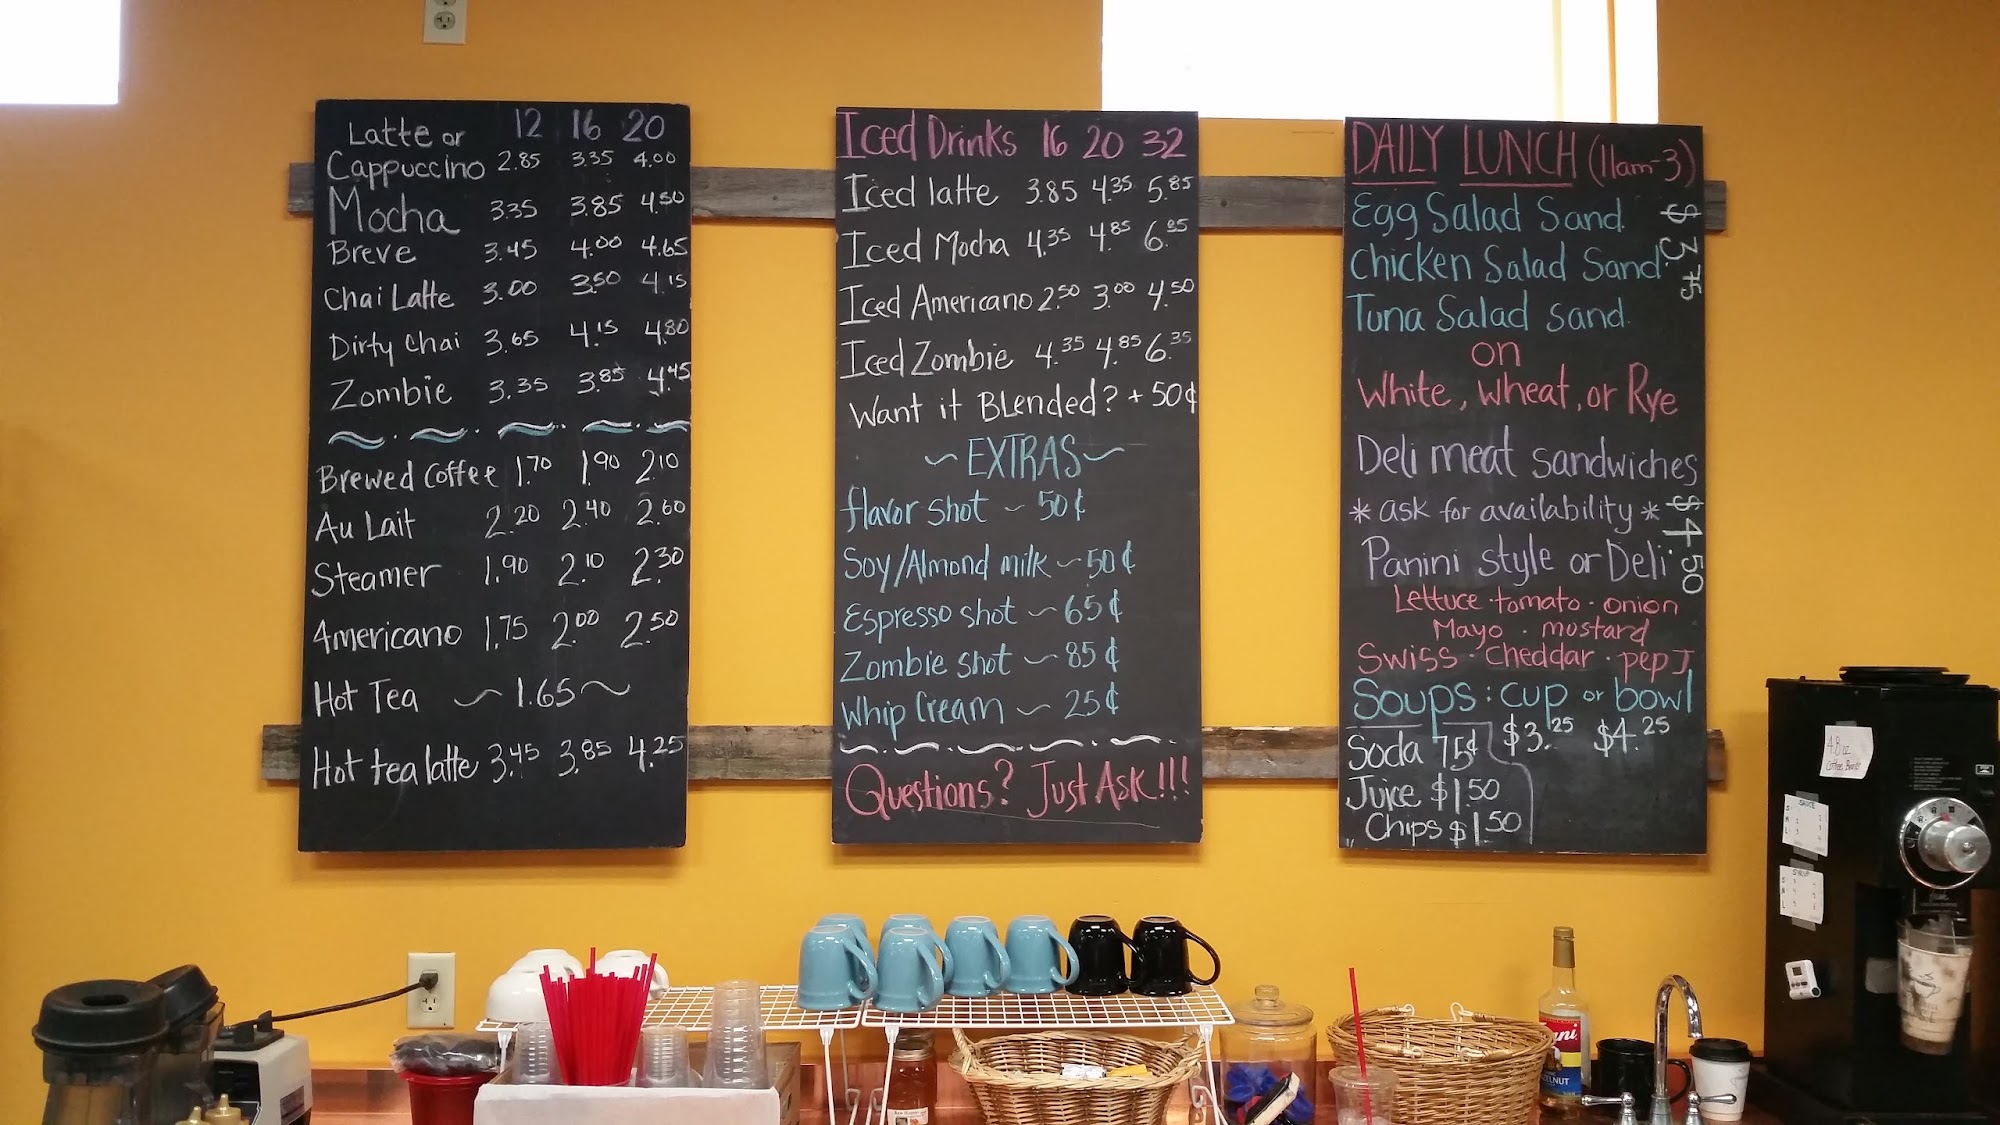 Latte or 12 16 20
Cappuccino 2.85 3.35 4.00
Mocha 3.35 3.85 4.50
Breve 3.45 4.00 4.65
Chai Latte 3.00 3.50 4.15
Dirty Chai 3.65 4.15 4.80
Zombie 3.35 3.85 4.45
Brewed Coffee 1.70 1.90 2.10
Au Lait 2.20 2.40 2.60
Steamer 1.90 2.10 2.30
Americano 1.75 2.00 2.50
Hot Tea ~ 1.65 ~
Hot tea latte 3.45 3.85 4.25
Iced Drinks 16 20 32
Iced latte 3.85 4.35 5.85
Iced Mocha 4.35 4.85 6.35
Iced Americano 2.50 3.00 4.50
Iced Zombie 4.35 4.85 6.35
Want it Blended? + 50¢
~ EXTRAS ~
flavor shot ~ 50¢
Soy/Almond milk ~ 50¢
Espresso shot ~ 65¢
Zombie shot ~ 85¢
Whip Cream ~ 25¢
Questions? Just Ask!!!
DAILY LUNCH (11am-3)
Egg Salad Sand.
Chicken Salad Sand.
Tuna Salad Sand.
$3.75
on
White, Wheat, or Rye
Deli meat sandwiches
*ask for availability*
Panini style or Deli
$4.50
Lettuce · tomato · onion
Mayo · mustard
Swiss · cheddar · pep J
Soups: cup or bowl
$3.25 $4.25
Soda 75¢
Juice $1.50
Chips $1.50
4.8 oz
SAUCE
SYRUP